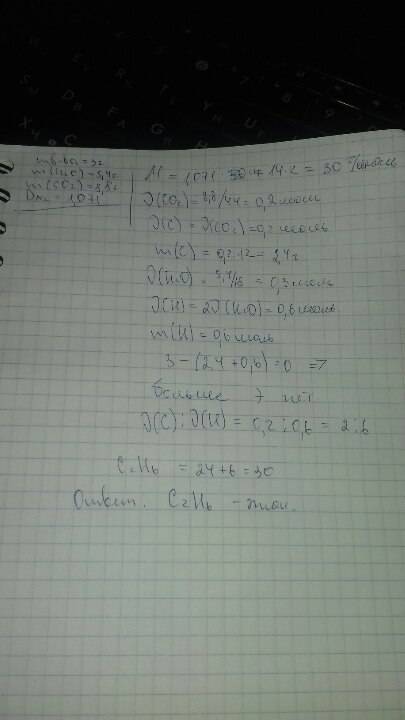 m в-ва = 3г
m(H₂O) = 5,4г
m(CO₂) = 8,8г
D = 1,071
M = 1,071 · 14·2 = 30 г/моль
ν(CO₂) = 8,8/44 = 0,2 моль
ν(C) = ν(CO₂) = 0,2 моль
m(C) = 0,2·12 = 2,4г
ν(H₂O) = 5,4/18 = 0,3 моль
ν(H) = 2ν(H₂O) = 0,6 моль
m(H) = 0,6 моль
3 - (2,4 + 0,6) = 0 =>
больше э нет
ν(C) : ν(H) = 0,2 : 0,6 = 2 : 6
C₂H₆ = 24 + 6 = 30
Ответ. C₂H₆ - этан.